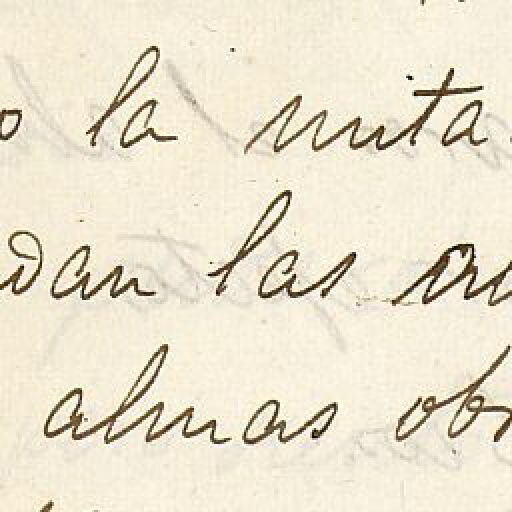 o la mita
dan las
almas ob